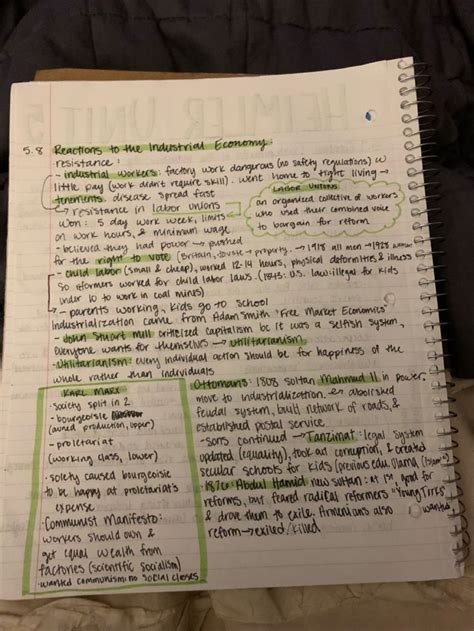 HEIMLER UNIT 5
5.8 Reactions to the Industrial Economy:
resistance:
- industrial workers: factory work dangerous (no safety regulations) w
little pay (work didn't require skill). went home to tight living →
tenements. disease spread fast
↳ resistance in labor unions
won: 5 day work week, limits
on work hours, & minimum wage
- believed they had power → pushed
LABOR UNIONS
an organized collective of workers
who used their combined voice
to bargain for reform
for the right to vote (Britain, house → property. → 1918 all men → 1928
- child labor (small & cheap), worked 12-14 hours, physical deformities & illness
so reformers worked for child labor laws. (1843: U.S. law: illegal for kids
under 10 to work in coal mines)
↳ - parents working, kids go to school
Industrialization came from Adam Smith "Free Market Economics"
- John Stuart Mill criticized capitalism bc it was a selfish system,
everyone wants for themselves → Utilitarianism
- Utilitarianism: every individual action should be for happiness of the
whole rather than individuals
KARL MARX
- society split in 2
- bourgeoisie
(owned production, upper)
- proletariat
(working class, lower)
- society caused bourgeoisie
to be happy at proletariat's
expense
- Communist Manifesto:
workers should own &
get equal wealth from
factories (scientific socialism)
- wanted communism: no social classes
Ottomans: 1808 sultan Mahmud II in power,
move to industrialization. & abolished
feudal system, built network of roads, &
established postal service
- sons continued → Tanzimat: legal system
updated (equality), took out corruption, & created
secular schools for kids (previous edu. Ulama, (Islamic)
- 1876: Abdul Hamid new sultan: at 1st, good for
reforms, but feared radical reformers "Young Turks"
& drove them to exile. Armenians also wanted
reform → exiled/killed